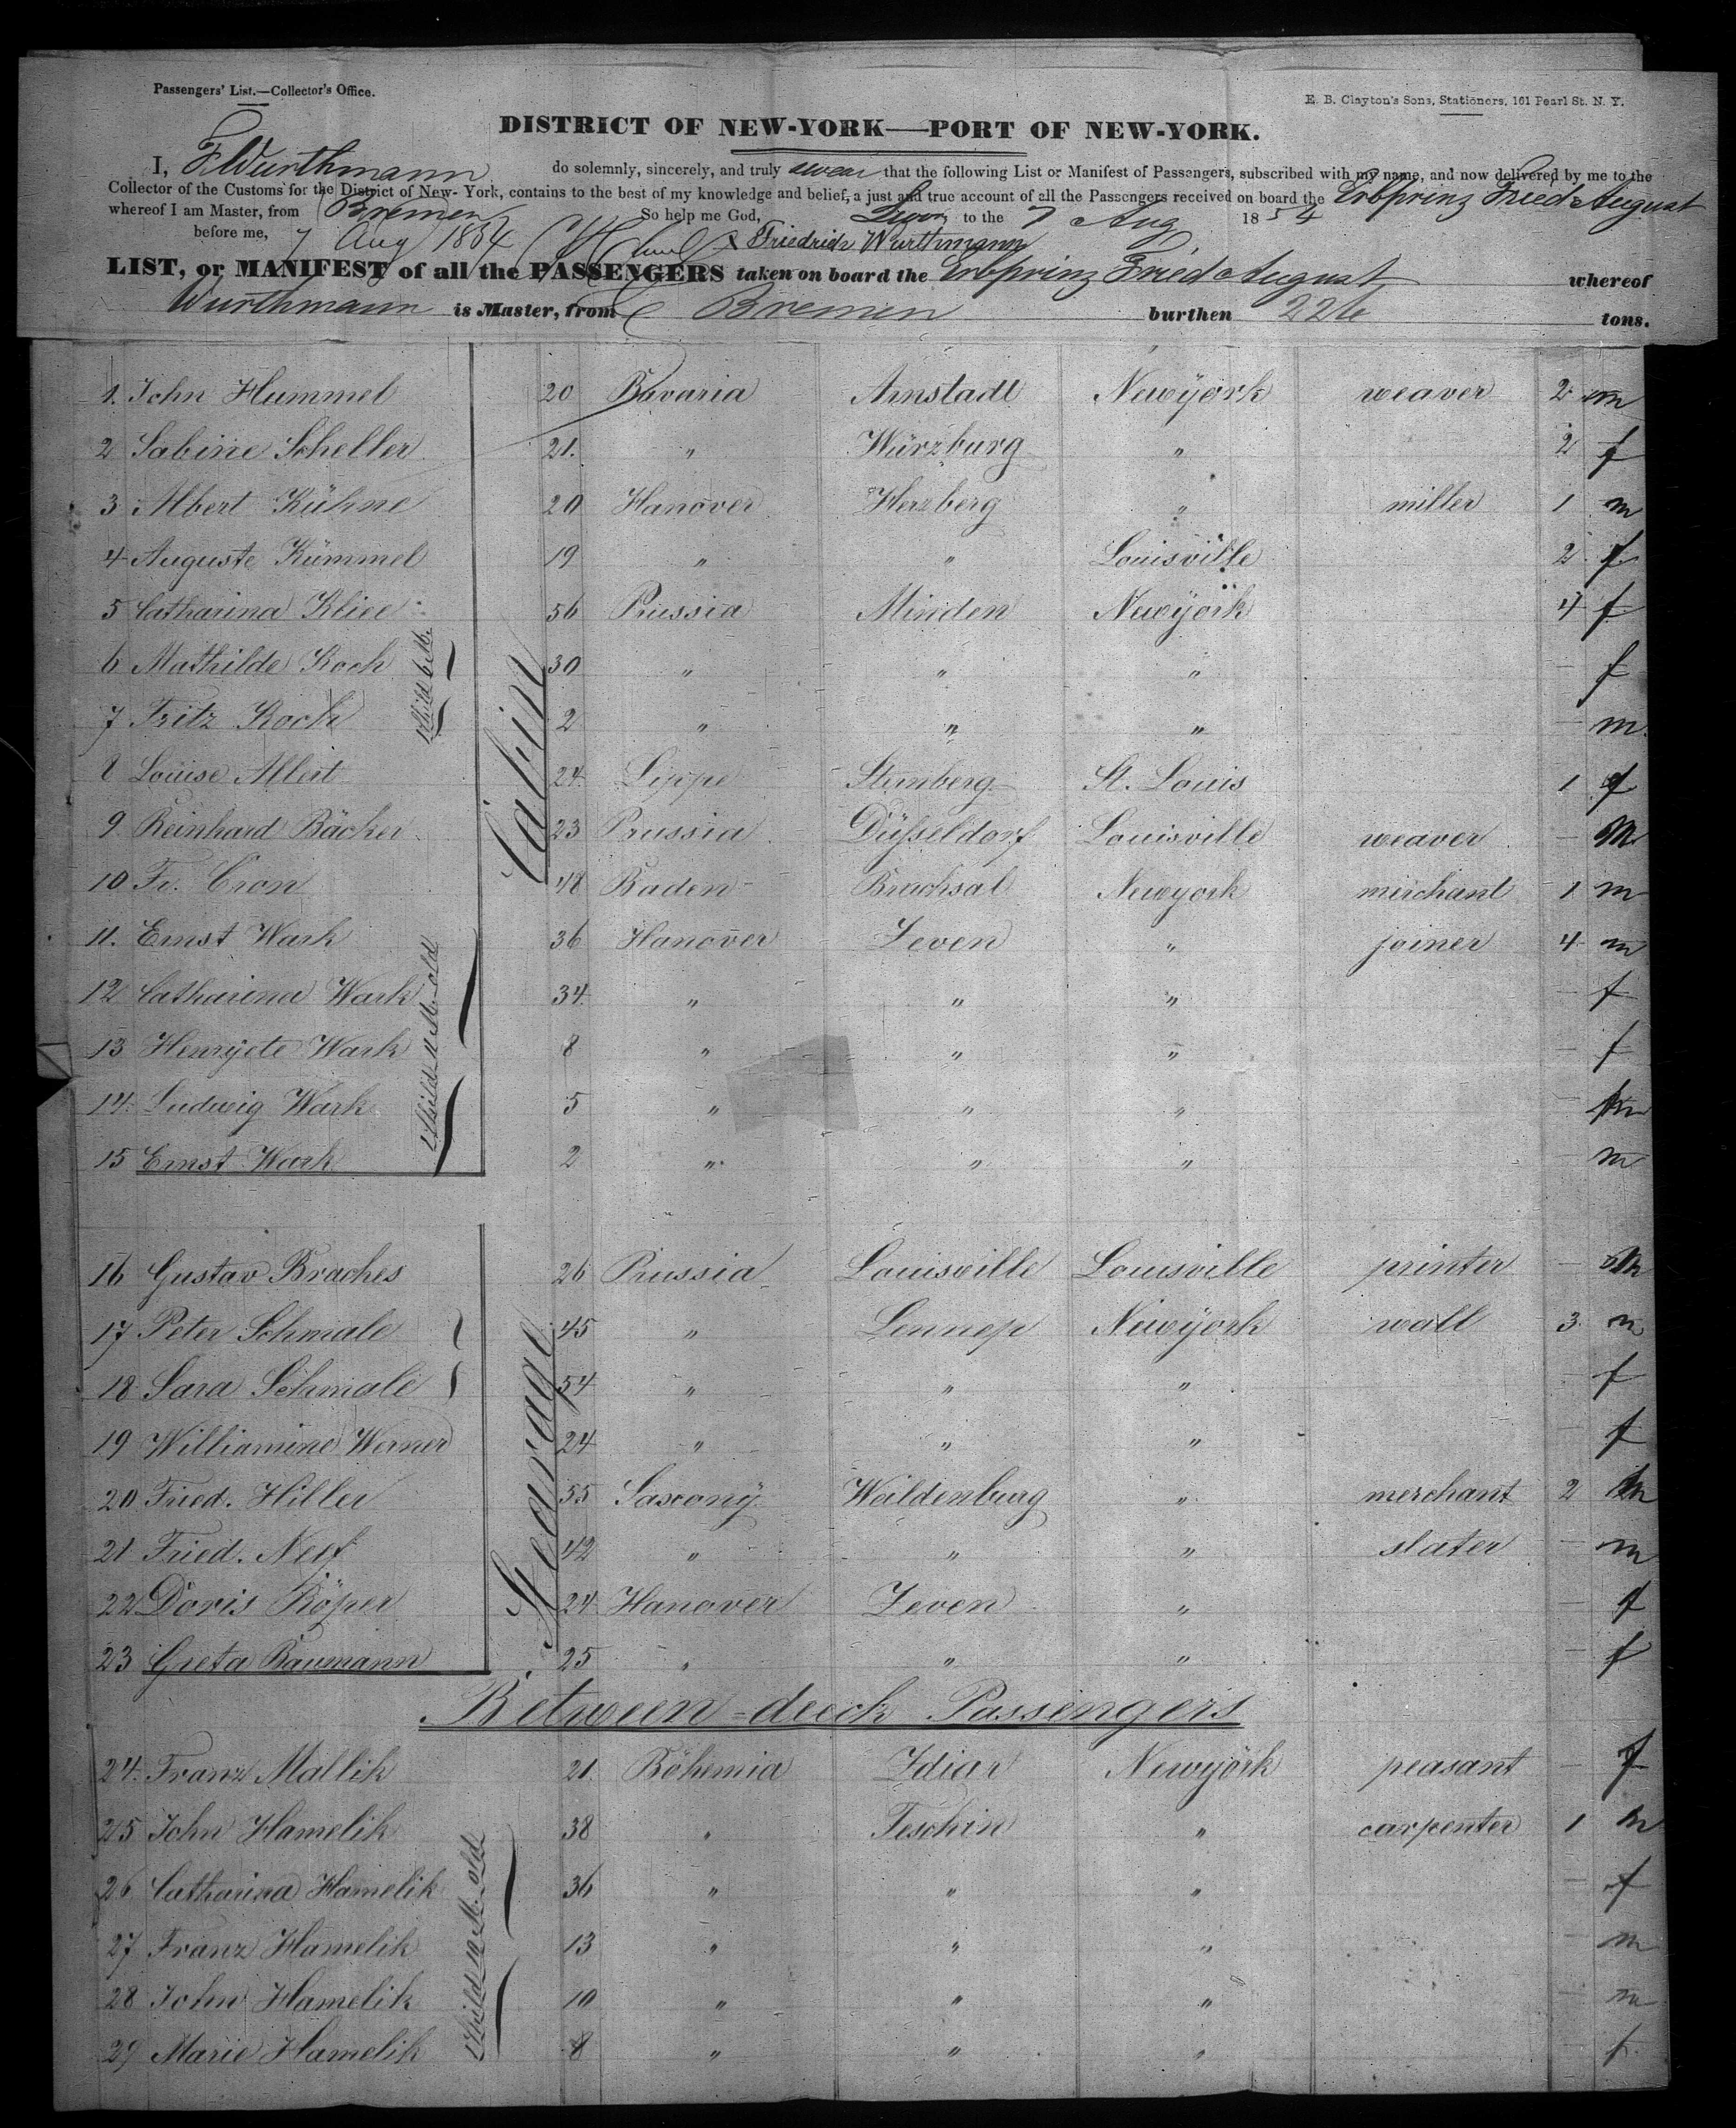 Passengers' List.—Collector's Office.
E. B. Clayton's Sons, Stationers, 161 Pearl St. N. Y.
DISTRICT OF NEW-YORK—PORT OF NEW-YORK.
I, F Wurthmann do solemnly, sincerely, and truly swear that the following List or Manifest of Passengers, subscribed with my name, and now delivered by me to the
Collector of the Customs for the District of New-York, contains to the best of my knowledge and belief, a just and true account of all the Passengers received on board the Erbprinz Fried August
whereof I am Master, from Bremen So help me God, Sworn to the 7 Aug 1854
before me, 7 Aug 1854 x Friedrich Wurthmann
LIST, or MANIFEST of all the PASSENGERS taken on board the Erbprinz Fried August whereof
Wurthmann is Master, from Bremen burthen 226 tons.
Cabin
1. John Hummel 20 Bavaria Arnstadt Newyork weaver 2 m
2 Sabine Scheller 21. " Würzburg " 2 f
3 Albert Kühne 20 Hanover Herzberg " miller 1 m
4 Auguste Kümmel 19 " " Louisville 2 f
5 Catharina Kliee 56 Prussia Minden Newyork 4 f
6 Mathilde Koch 30 " " " — f
7 Fritz Koch 2 " " " — m.
1 Child 6 M.
8 Louise Albert 24 Lippe Sternberg St. Louis 1 f
9 Reinhard Bäcker 23 Prussia Düsseldorf Louisville weaver — m
10 Fr. Cron 48 Baden Bruchsal Newyork merchant 1 m
11. Ernst Wark 36 Hanover Zeven " joiner 4 m
12 Catharina Wark 34 " " " — f
13 Henryete Wark 8 " " " — f
14. Ludwig Wark 5 " " " — m
15 Ernst Wark 2 " " " — m
1 Child 11 M. old
Stearage
16 Gustav Braches 26 Prussia Louisville Louisville printer — m
17 Peter Schmale 45 " Lennep Newyork wall 3 m
18 Sara Schmale 54 " " " — f
19 Williamine Werner 24 " " " — f
20 Fried. Hiller 55 Saxony Waldenburg " merchant 2 m
21 Fried. Neef 42 " " " slater — m
22 Doris Röper 24 Hanover Zeven " — f
23 Greta Baumann 25 " " " — f
Between-deeck Passengers
24. Franz Mallik 21. Böhemia Zdiar Newyork peasant — f
25 John Hamelik 38 " Teschin " carpenter 1 m
26 Catharina Hamelik 36 " " " — f
27 Franz Hamelik 13 " " " — m
28 John Hamelik 10 " " " — m
29 Marie Hamelik 8 " " " — f
1 Child 10 M. old